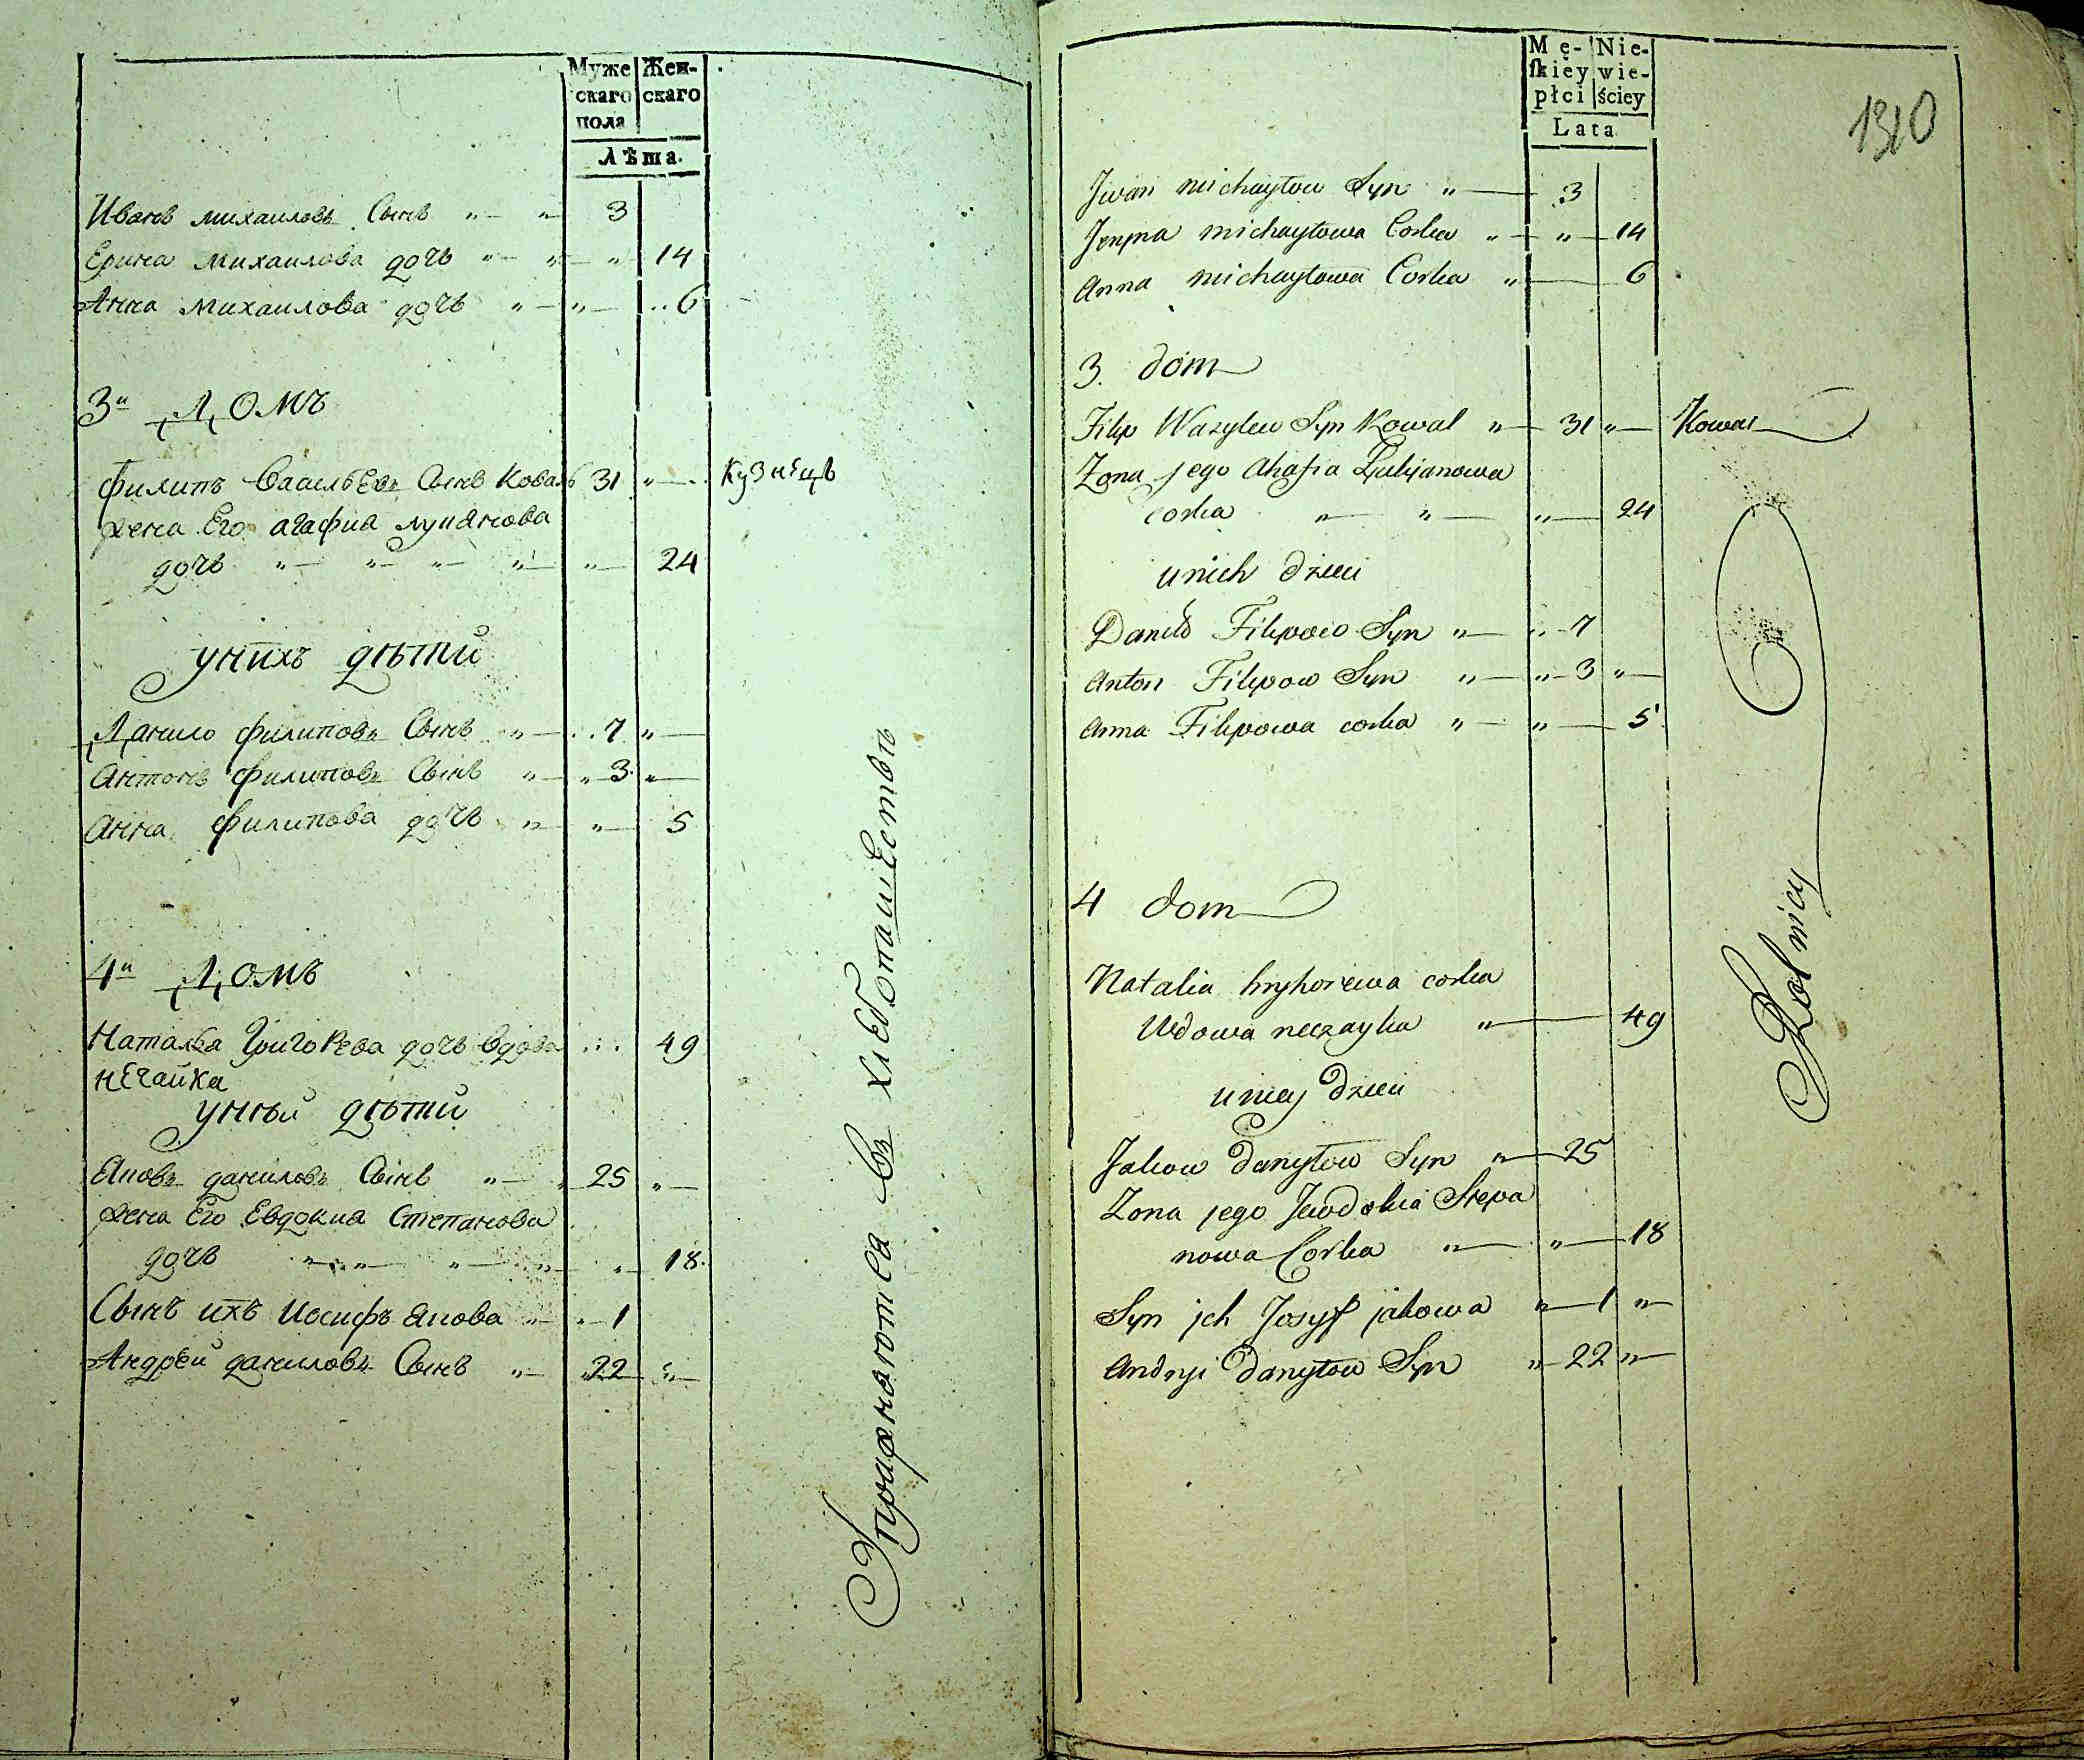 Муже Жен-
скаго скаго
пола
Лѣта.
Иванъ михаиловъ Сынъ " — " 3
Ерина Михаилова дочь " — " — " 14
Анна Михаилова дочь " — " — .. 6
3й Домъ
Филипъ Васильевъ Сынъ Коваль 31 " — Кузнецъ
жена Его агафиа лукианова
дочь " — " — " — " — " — 24
унихъ дѣти
Данило филиповъ Сынъ " — .. 7 " —
Антонъ филиповъ Сынъ " — " 3 " —
Анна филипова дочь " — " — 5
4й Домъ
Наталья Григорева дочь вдова ... 49
нечайка
унѣй дѣти
Яковъ даниловъ Сынъ " — " 25 " —
жена Его Евдокиа Степанова
дочь " — " — " — " — " — 18.
Сынъ ихъ Иосифъ якова " — " 1
Андрей даниловъ Сынъ " — 22 " —
Упражняютса въ хлѣбопашествѣ
Mę- Nie-
ſkiey wie-
płci ściey
Lata
1310
Jwan michayłow Syn " — 3
Jrnyna michayłowa Corka " — " — 14
Anna michayłowa Corka " — 6
3. dom
Filip Wazylew Syn Kowal " — 31 " — Kowal
Zona jego Ahafia Łukjanowa
corka " — " — " — 24
unich dzieci
Daniło Filipow Syn " — .. 7
Anton Filipow Syn " — " 3 " —
Anna Filipowa corka " — " — 5
4 dom
Natalia hryhorewa corka
Wdowa neczayka " — 49
uniey dzieci
Jakow danyłow Syn " — 25
Zona jego Jewdokia Stepa
nowa Corka " — " — 18
Syn jch Josyf jakowa " — 1 "
Andryi danyłow Syn " — 22 " —
Rolnicy